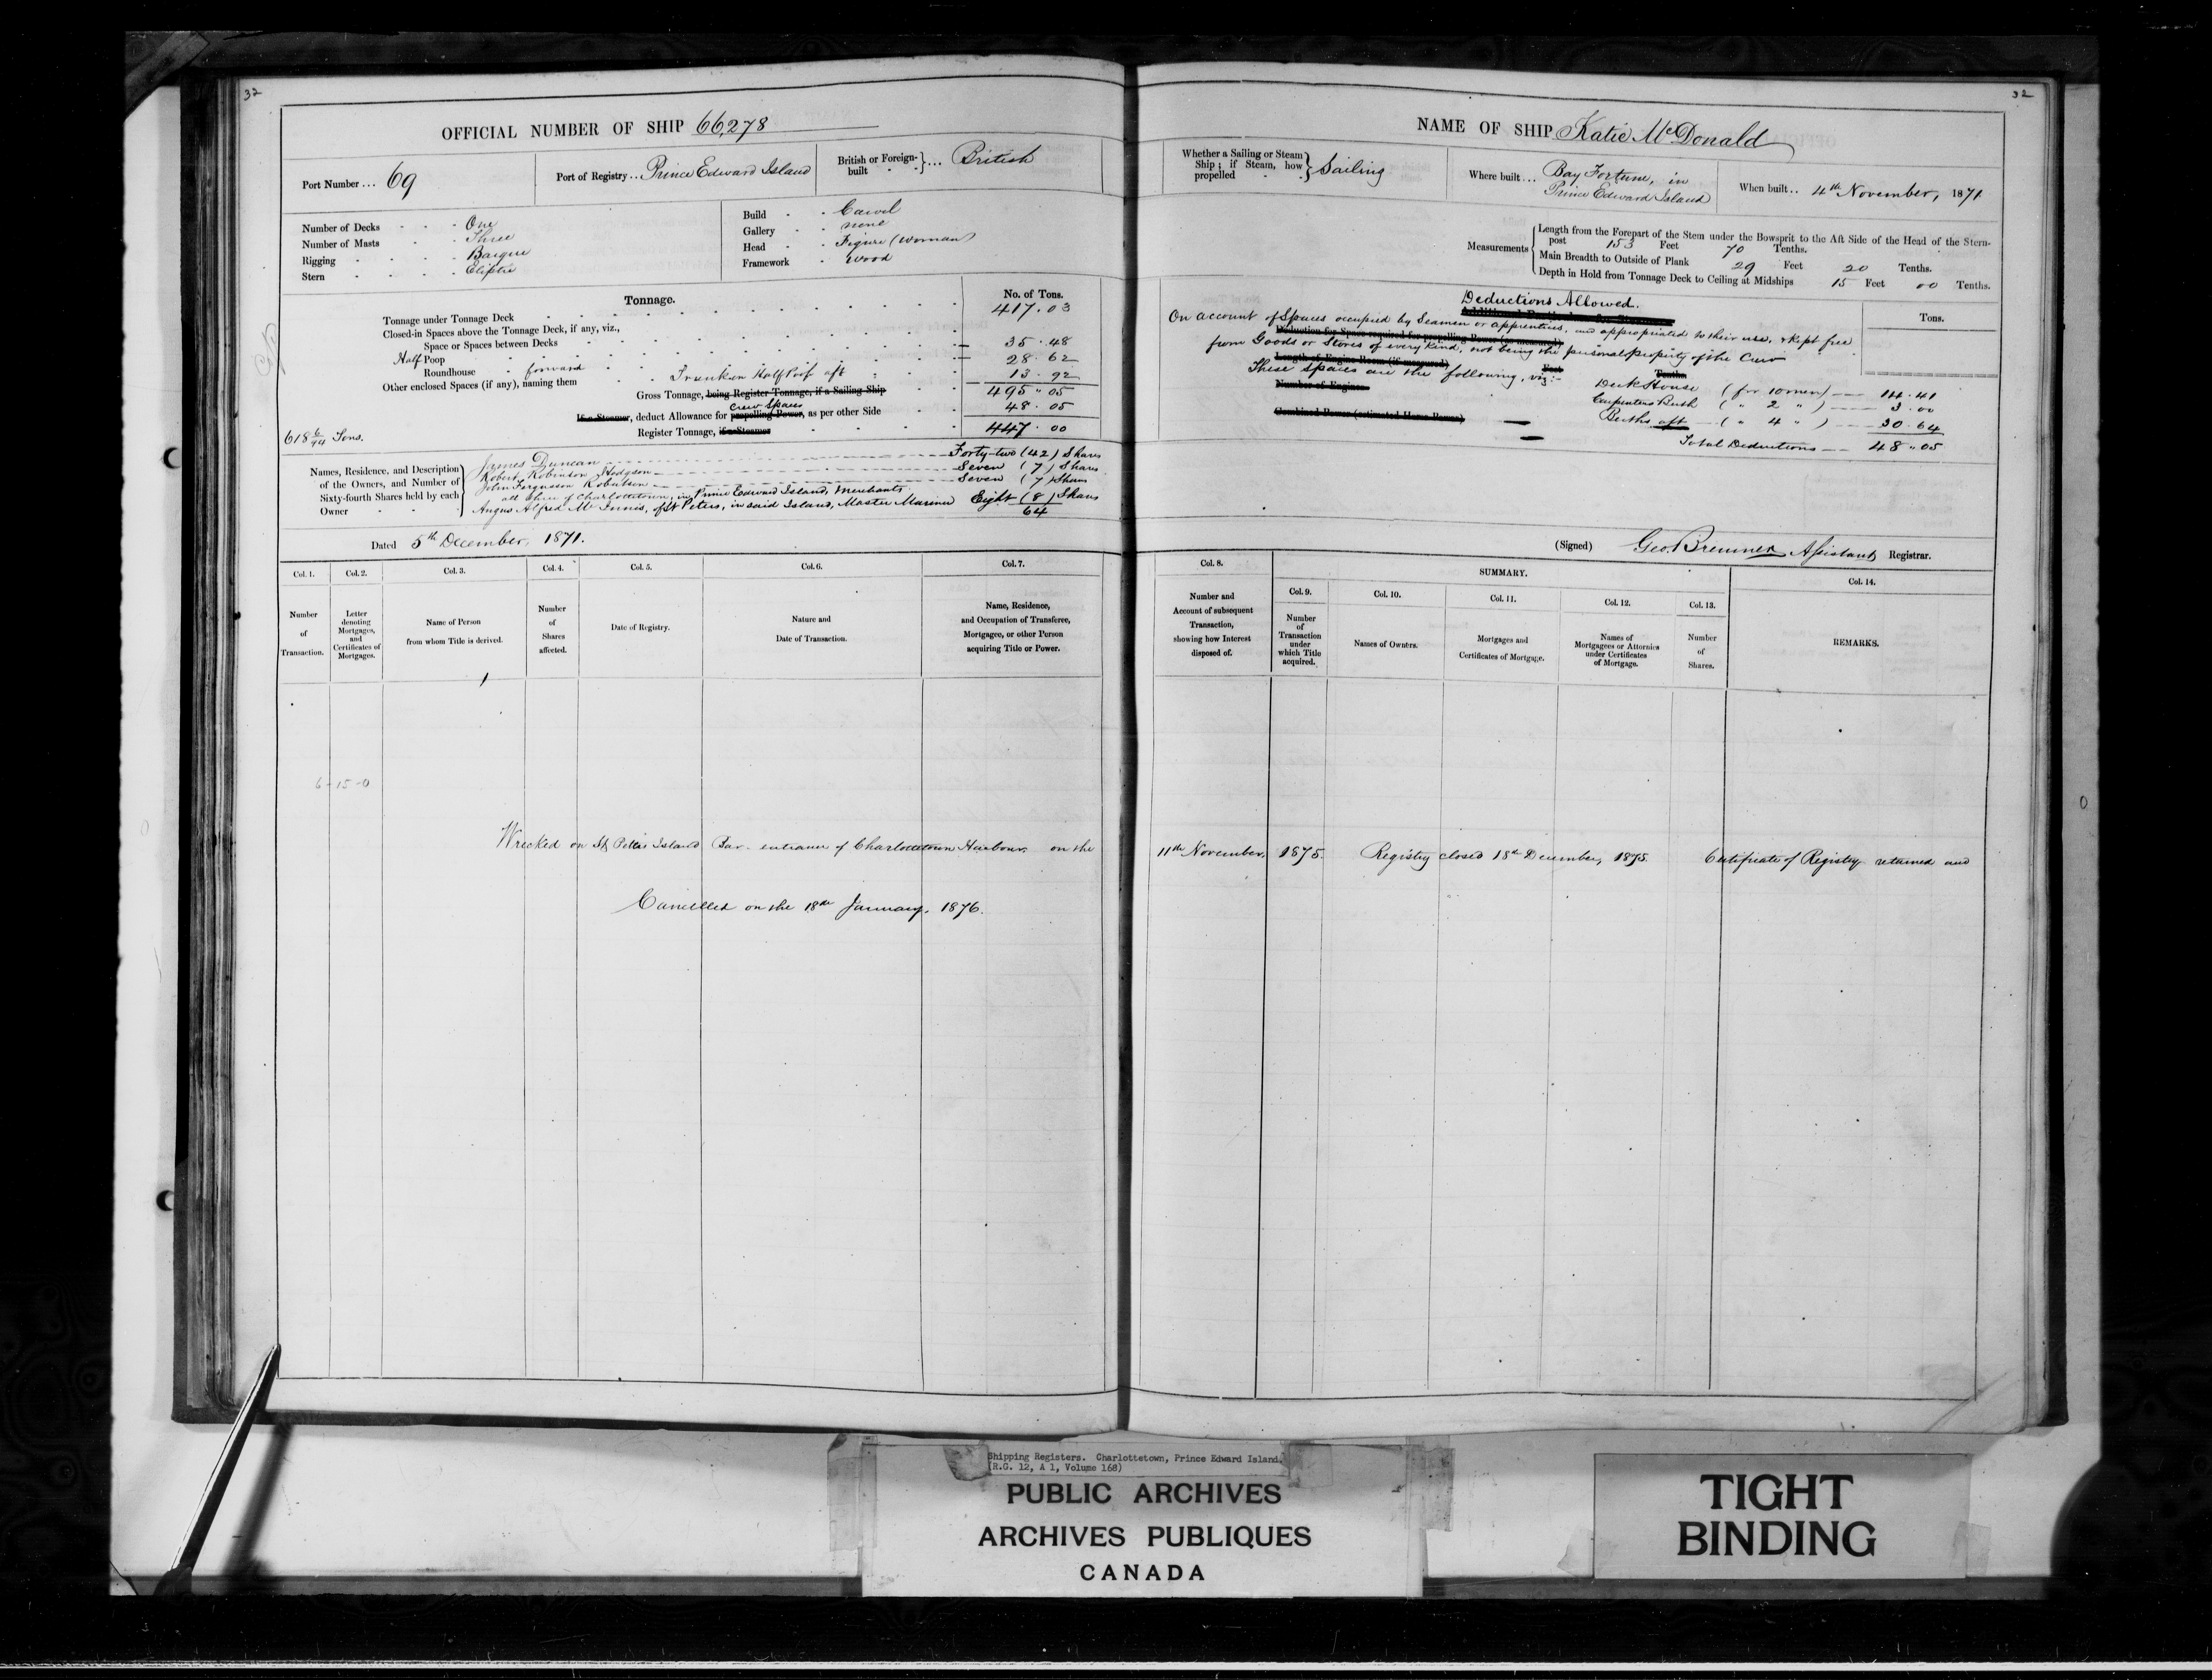 32
OFFICIAL NUMBER OF SHIP 66,278
Port Number ... 69
Port of Registry .. Prince Edward Island
British or Foreign-built } ... British
Number of Decks - - - One
Number of Masts - - Three
Rigging - - - - Barque
Stern - - - - Eliptic
Build - - Carvel
Gallery - - none
Head - - Figure (Woman)
Framework - wood
Tonnage.
No. of Tons.
Tonnage under Tonnage Deck 417.03
Closed-in Spaces above the Tonnage Deck, if any, viz.,
Space or Spaces between Decks
Half Poop 35.48
Roundhouse - forward 28.62
Other enclosed Spaces (if any), naming them Trunk on Half Poop aft 13.92
Gross Tonnage, being Register Tonnage, if a Sailing Ship 495.05
Crew Spaces
If a Steamer, deduct Allowance for propelling Power, as per other Side 48.05
Register Tonnage, if a Steamer 447.00
618 6/94 Tons.
Names, Residence, and Description of the Owners, and Number of Sixty-fourth Shares held by each Owner
James Duncan Forty-two (42) Shares
Robert Robinson Hodgson Seven (7) Shares
John Fergusson Robertson Seven (7) Shares
all three of Charlottetown, in Prince Edward Island, Merchants
Angus Alfred McInnis, of St Peters, in said Island, Master Mariner Eight (8) Shares
64
Dated 5th December, 1871.
Col. 1. Col. 2. Col. 3. Col. 4. Col. 5. Col. 6. Col. 7.
Number of Transaction.
Letter denoting Mortgages, and Certificates of Mortgages.
Name of Person from whom Title is derived.
Number of Shares affected.
Date of Registry.
Nature and Date of Transaction.
Name, Residence, and Occupation of Transferee, Mortgagee, or other Person acquiring Title or Power.
6-15-0
32
NAME OF SHIP Katie McDonald
Whether a Sailing or Steam Ship; if Steam, how propelled } Sailing
Where built ... Bay Fortune, in Prince Edward Island
When built .. 4th November, 1871
Measurements
Length from the Forepart of the Stem under the Bowsprit to the Aft Side of the Head of the Stern-
post 153 Feet 70 Tenths.
Main Breadth to Outside of Plank 29 Feet 20 Tenths.
Depth in Hold from Tonnage Deck to Ceiling at Midships 15 Feet 00 Tenths.
Deductions Allowed.
Tons.
On account of Spaces occupied by Seamen or apprentices, and appropriated to their use, & kept free
Deduction for Space required for propelling Power (as measured)
from Goods or Stores of every kind, not being the personal property of the Crew
Length of Engine Room (if measured) Feet Tenths
These spaces are the following, viz:-
Number of Engines
Deck House (for 10 men) 14.41
Carpenters Berth ( " 2 " ) 3.00
Combined Power (estimated Horse Power)
Berths aft ( " 4 " ) 30.64
Total Deductions 48.05
(Signed) Geo. Bremner Assistant Registrar.
Col. 8. SUMMARY. Col. 14.
Col. 9. Col. 10. Col. 11. Col. 12. Col. 13.
Number and Account of subsequent Transaction, showing how Interest disposed of.
Number of Transaction under which Title acquired.
Names of Owners.
Mortgages and Certificates of Mortgage.
Names of Mortgagees or Attornies under Certificates of Mortgage.
Number of Shares.
REMARKS.
Wrecked on St Peters Island Bar - entrance of Charlottetown Harbour on the 11th November, 1875. Registry closed 18th December, 1875. Certificate of Registry retained and
Cancelled on the 18th January, 1876.
Shipping Registers. Charlottetown, Prince Edward Island.
(R.G. 12, A 1, Volume 168)
PUBLIC ARCHIVES
ARCHIVES PUBLIQUES
CANADA
TIGHT
BINDING